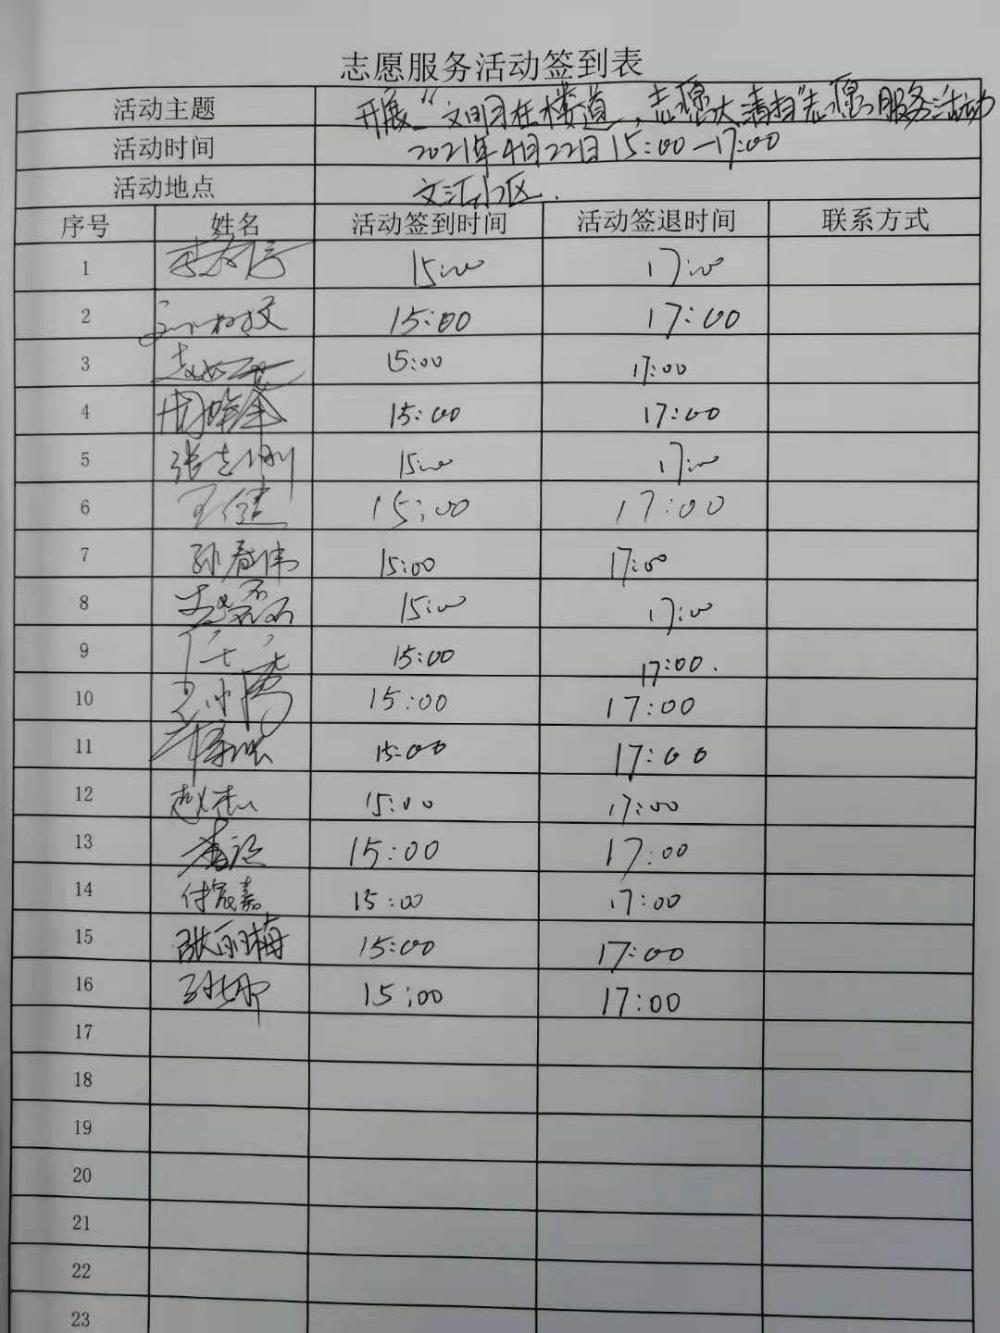 志愿服务活动签到表
活动主题 开展“文明在楼道,志愿大清扫”志愿服务活动
活动时间 2021年4月22日15:00—17:00
活动地点 文江小区.
序号 姓名 活动签到时间 活动签退时间 联系方式
1 15:00 17:00
2 15:00 17:00
3 15:00 17:00
4 15:00 17:00
5 张志刚 15:00 17:00
6 王健 15:00 17:00
7 孙春伟 15:00 17:00
8 15:00 17:00
9 15:00 17:00.
10 15:00 17:00
11 15:00 17:00
12 15:00 17:00
13 15:00 17:00
14 付宸嘉 15:00 17:00
15 张丽梅 15:00 17:00
16 15:00 17:00
17
18
19
20
21
22
23